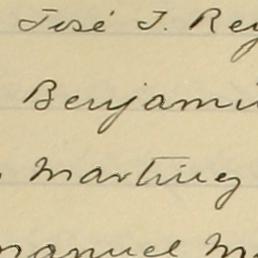 José J. Rey
Benjami
Martinez
manuel M